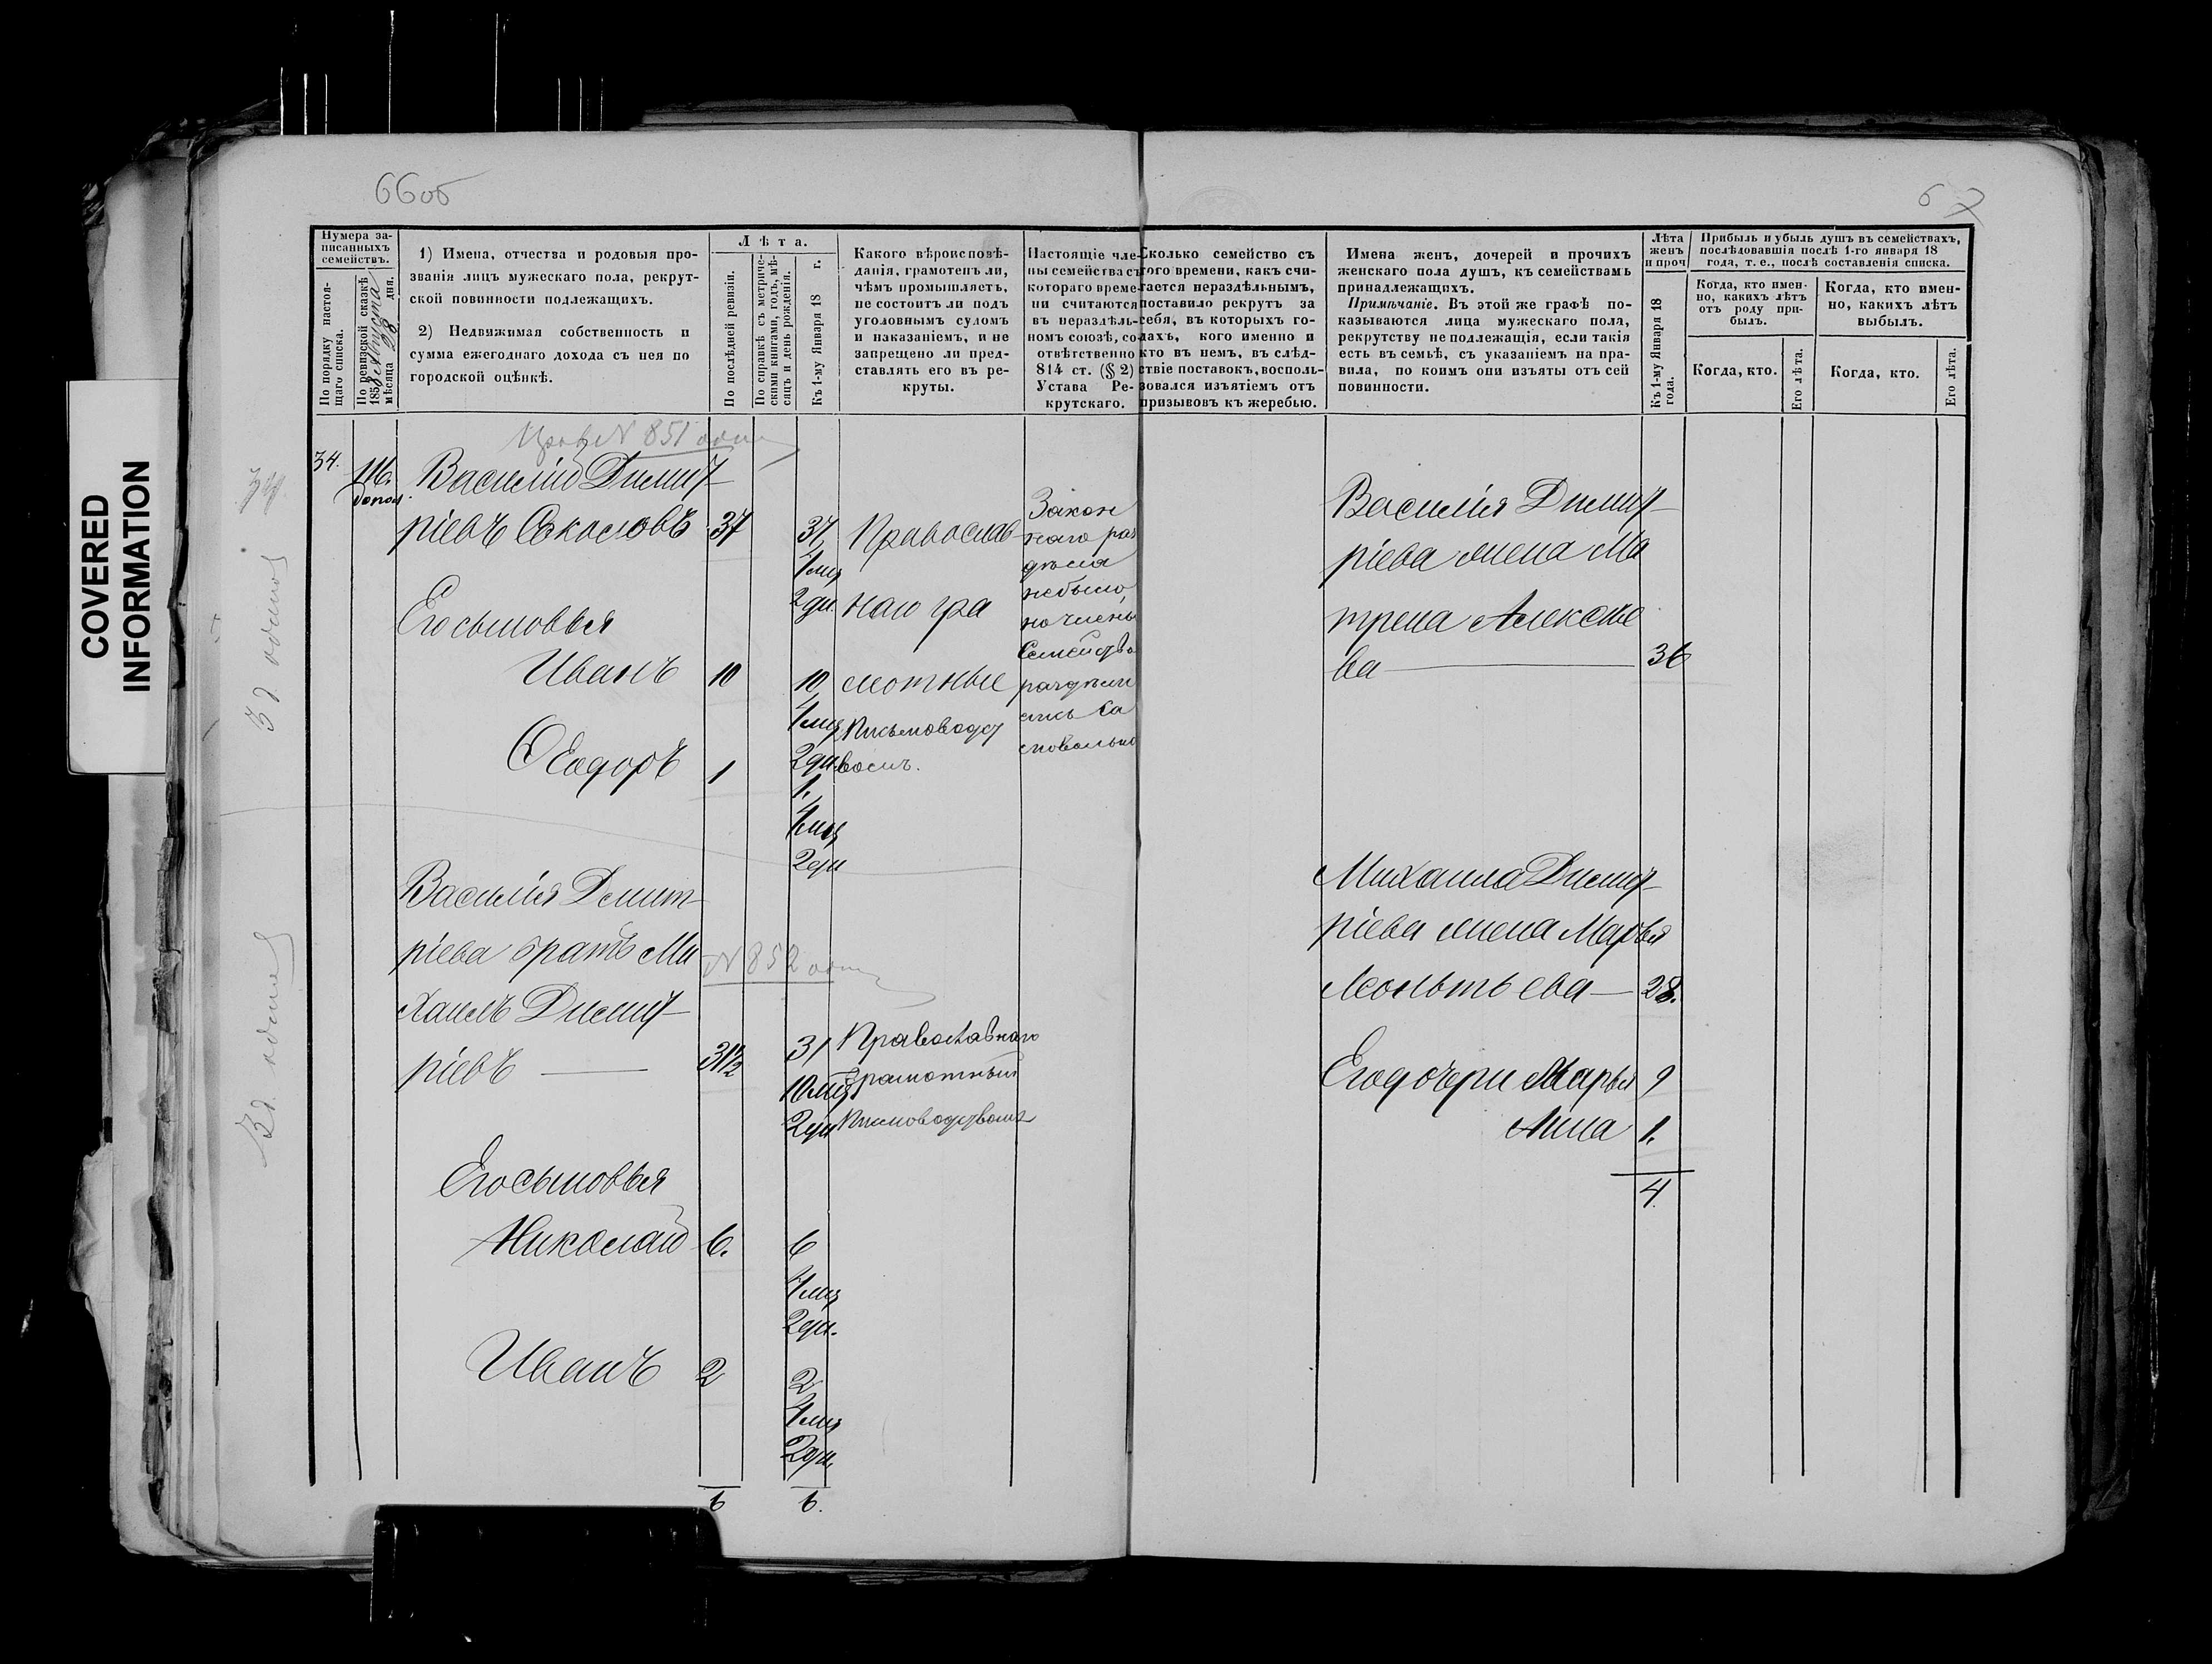 COVERED
INFORMATION
66об
67
Нумера за-
писанныхъ
семействъ.
По порядку настоя-
щаго списка.
По ревизской сказкѣ
185 августа
мѣсяца 28 дня.
1) Имена, отчества и родовыя про-
званія лицъ мужескаго пола, рекрут-
ской повинности подлежащихъ.
2) Недвижимая собственность и
сумма ежегоднаго дохода съ нея по
городской оцѣнкѣ.
Лѣта.
По послѣдней ревизіи.
По справкѣ съ метриче-
скими книгами, годъ, мѣ-
сяцъ и день рожденія.
Къ 1-му Января 18 г.
Какого вѣроисповѣ-
данія, грамотенъ ли,
чѣмъ промышляетъ,
не состоитъ ли подъ
уголовнымъ судомъ
и наказаніемъ, и не
запрещено ли пред-
ставлять его въ ре-
круты.
Настоящіе чле-
ны семейства съ
котораго време-
ни считаются
въ нераздѣль-
номъ союзѣ, со-
отвѣтственно
814 ст. (§ 2)
Устава Ре-
крутскаго.
Сколько семейство съ
того времени, какъ счи-
тается нераздѣльнымъ,
поставило рекрутъ за
себя, въ которыхъ го-
дахъ, кого именно и
кто въ немъ, въ слѣд-
ствіе поставокъ, восполь-
зовался изъятіемъ отъ
призывовъ къ жеребью.
Имена женъ, дочерей и прочихъ
женскаго пола душъ, къ семействамъ
принадлежащихъ.
Примѣчаніе. Въ этой же графѣ по-
казываются лица мужескаго пола,
рекрутству не подлежащія, если такія
есть въ семьѣ, съ указаніемъ на пра-
вила, по коимъ они изъяты отъ сей
повинности.
Лѣта
женъ
и проч
Къ 1-му Января 18
года.
Прибыль и убыль душъ въ семействахъ,
послѣдовавшія послѣ 1-го января 18
года, т. е., послѣ составленія списка.
Когда, кто имен-
но, какихъ лѣтъ
отъ роду при-
былъ.
Когда, кто имен-
но, какихъ лѣтъ
выбылъ.
Когда, кто.
Его лѣта.
Когда, кто.
Его лѣта.
N 851
34.
116.
Василій Димит
ріевъ Соколовъ 37
37
4 мц
2 дн.
Православ
наго гра
мотные
Письмовод
вомъ.
Закон
наго раз
дѣла
небыло,
но члены
Семейства
раздѣли
лись Са
мовольно
Его сыновья
Иванъ 10
10
4 мц
2 дн.
Ѳеодоръ 1
1.
4 мц
2 дн
Василія Демит
ріева братъ Ми
N 852
хаилъ Димит
ріевъ — 31½
31
10 мц
2 дн
Православнаго
Грамотный
Писмоводствомъ
Его сыновья
Николай 6.
6
4 мц
2 дн.
Иванъ 2
2
4 мц
2 дн.
6
6.
Василія Димит
ріева жена Ма
трена Алексѣе
ва — 36
Михаила Димит
ріева жена Марья
Леонтьева — 28.
Его дочери Марья 9
Анна 1.
4